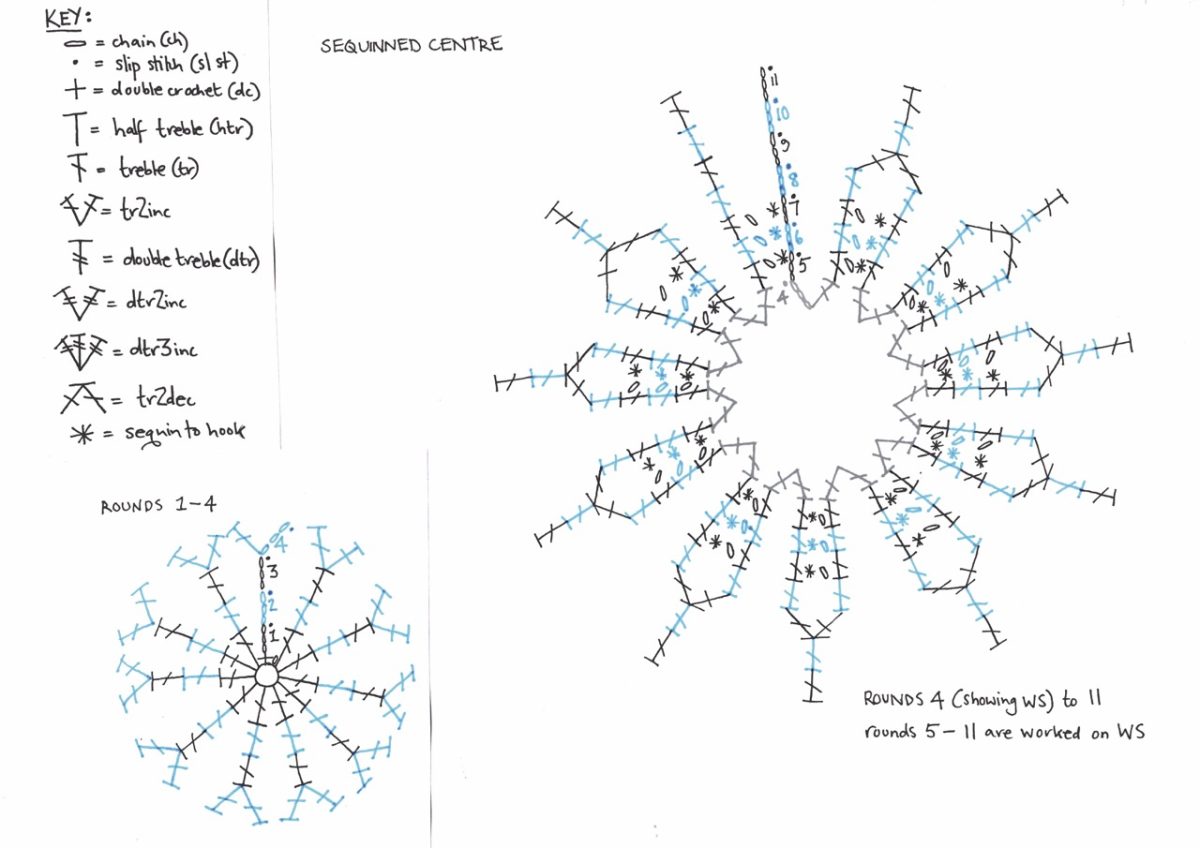 KEY:
= chain (ch)
= slip stitch (sl st)
= double crochet (dc)
= half treble (htr)
= treble (tr)
= tr2inc
= double treble (dtr)
= dtr2inc
= dtr3inc
= tr2dec
= sequin to hook
SEQUINNED CENTRE
11
10
9
8
7
6
5
4
ROUNDS 1-4
4
3
2
1
ROUNDS 4 (showing WS) to 11
rounds 5-11 are worked on WS